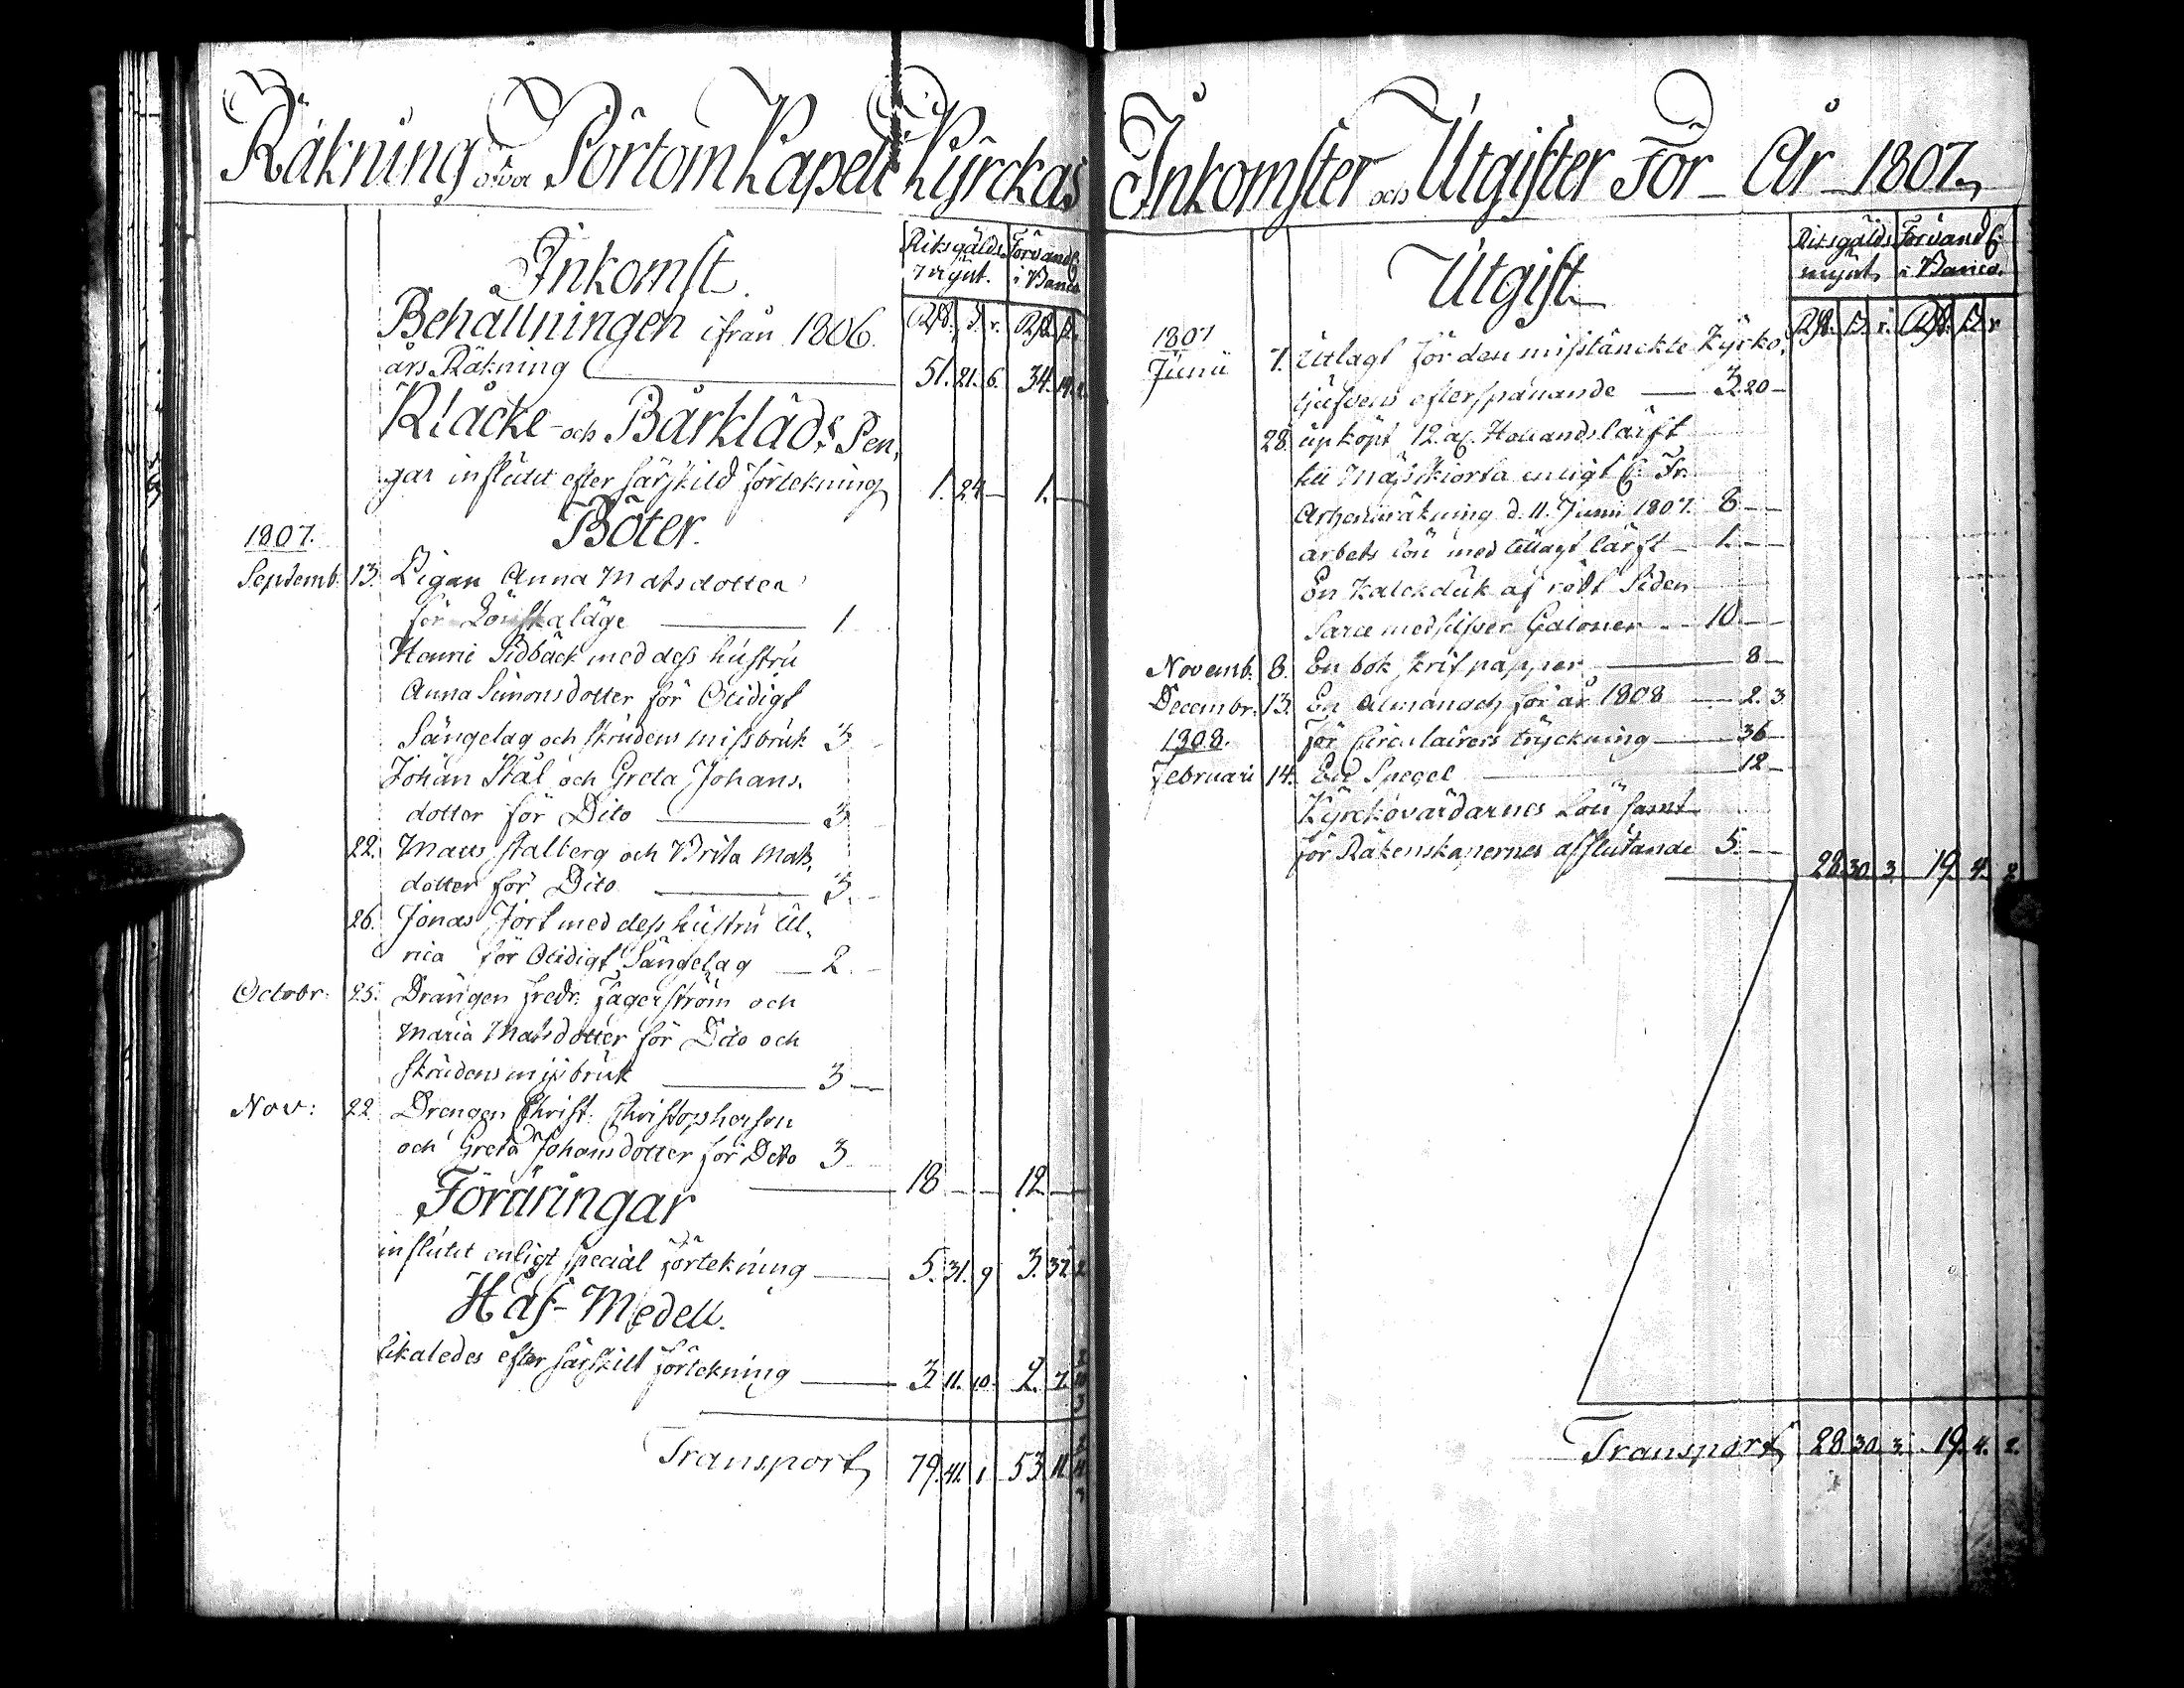 Räkning öfver Pörtom Kapell Kyrckas
Inkomst.
Riksgälds Förvandl.
mynt. i Banco
Behållningen ifrån 1806.
Rdr. s. r. Rdr. s.
års Räkning 51. 21. 6. 34. 14.
Klåcke- och Bårkläds Pen,
gar influtit efter särskild förtekning 1. 24 — 1. —
Böter.
1807.
Septemb. 13. Pigan Anna Matsdotter
för Lönskaläge 1
Henric Sidbäck med dess hustru
Anna Simonsdotter för Otidigt
Sängelag och skrudens missbruk 3
Johan Stål och Greta Johans.
dotter för Dito 3
22. Mats Stalberg och Brita Mats,
dotter för Dito 3. —
26. Jonas Jort med dess hustru Ul,
rica för Otidigt Sängelag 2. —
Octobr. 25. Drängen Fredr. Fagerström och
Maria Matsdotter för Dito och
skrudens missbruk 3 —
Nov: 22 Drengen Christ. Christopherson
och Greta Johansdotter för Dito 3
18 — — 12 —
Föräringar
influtit enligt special förtekning 5. 31. 9 3. 37. 2
Håf-Medell.
likaledes efter särskilt förtekning 3. 11. 10. 2. 7.
Transport 79. 41. 1 53. 11.
Inkomster och Utgifter För År 1807.
Utgift
Riksgälds Förvandl.
mynt i Banco.
Rdr. s. r. Rdr. s. r
1807
Junii 7. Utlagt för den misstänckte Kyrko,
tjufvens efterspanande 3. 20 —
28. Upköpt 12. al. Hollandslärft
till Mässkiorta enligt
räkning d. 11. Junii 1807. 8 — —
arbets lön med tillagt lärft 1. — —
En Kalckduk af rödt Siden
Sarce med silfver Galoner 10. — —
Novemb. 8. En bok skrifpapper 8 —
Decembr. 13. En Almanach för år 1808 2. 3
1808. För Circulairers tryckning 36 —
Februari 14. En Spegel 12 —
Kyrckovärdarnes Lön samt
för Räkenskapernes afslutande 5. — —
28. 30. 3. 19. 4. 2
Transport 28. 30. 3. 19. 4. 2.